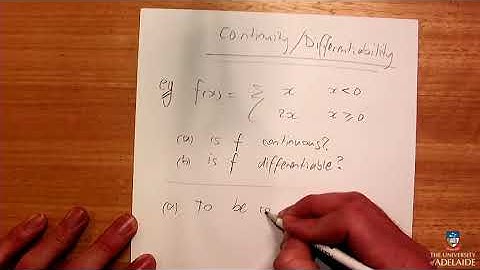 Continuity/Differentiability
eg f(x) = { x x<0
2x x⩾0
(a) is f continuous?
(b) is f differentiable?
(a) To be co
THE UNIVERSITY
of ADELAIDE